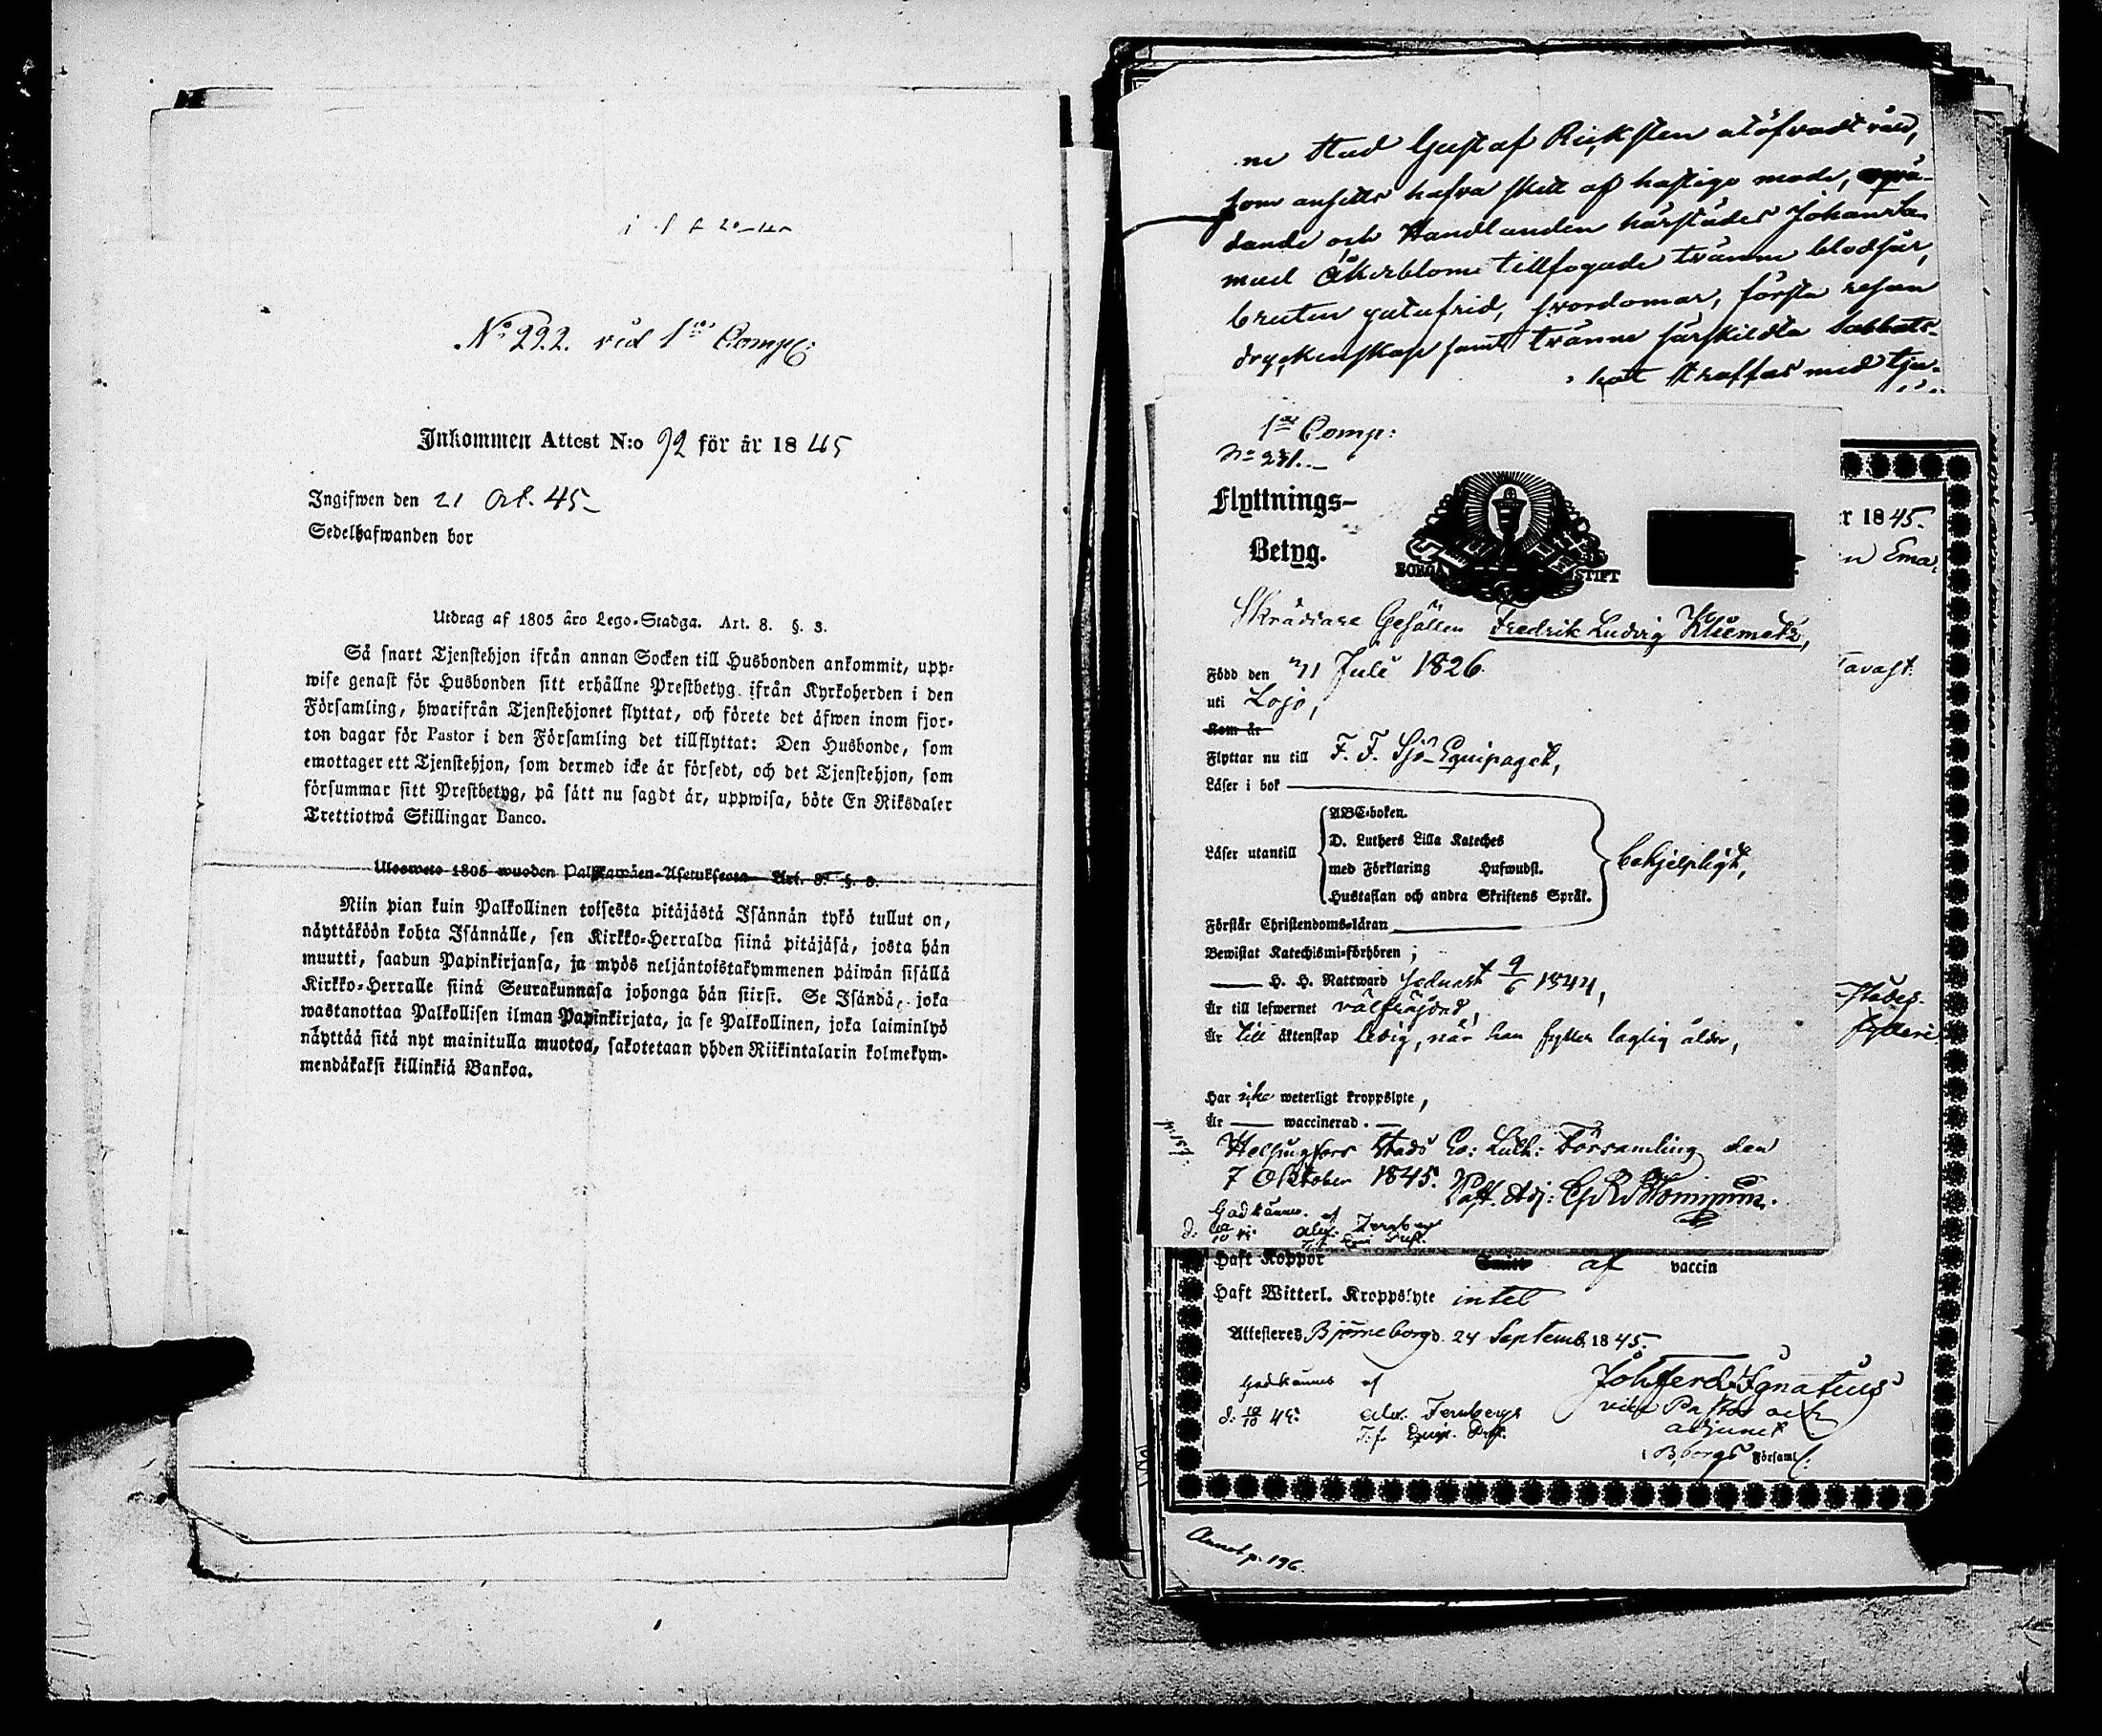 No 292. vid 1sta Comp:
Inkommen Attest N:o 92 för år 1845
Ingifwen den 21 Oct. 45
Sedelhafwanden bor
Utdrag af 1805 års Lego-Stadga. Art. 8. §. 3.
Så snart Tjenstehjon ifrån annan Socken till Husbonden ankommit, upp-
wise genast för Husbonden sitt erhållne Prestbetyg ifrån Kyrkoherden i den
Församling, hwarifrån Tjenstehjonet flyttat, och förete det äfwen inom fjor-
ton dagar för Pastor i den Församling det tillflyttat: Den Husbonde, som
emottager ett Tjenstehjon, som dermed icke är försedt, och det Tjenstehjon, som
försummar sitt Prestbetyg, på sätt nu sagdt är, uppwisa, böte En Riksdaler
Trettiotwå Skillingar Banco.
Ulosweto 1805 wuoden Palkkawäen-Asetuksesta Art. 8. §. 3.
Niin pian kuin Palkollinen toisesta pitäjästä Isännän tykö tullut on,
näyttäköön kohta Isännälle, sen Kirkko-Herralda siinä pitäjäsä, josta hän
muutti, saadun Papinkirjansa, ja myös neljäntoistakymmenen päiwän sisällä
Kirkko-Herralle siinä Seurakunnasa johonga hän siirst. Se Isändä, joka
wastanottaa Palkollisen ilman Papinkirjata, ja se Palkollinen, joka laiminlyö
näyttää sitä nyt mainitulla muotoa, sakotetaan yhden Riikintalarin kolmekym-
mendäkaksi killinkiä Bankoa.
ne Stad Gustaf Ricksten alöfvadt våld,
som ansetts hafva skett af hastigo mode,
dande och Handlanden härstädes Johan
Åkerblom tillfogade tvänne blodsår,
bruten gatufrid, svordomar, första resan
dryckenskap samt tvänne särskildta Sabbats-
straffas med tju-
1sta Comp:
No 291.
Flyttnings-
Betyg.
BORGÅ STIFT
Skräddare Gesällen Fredrik Ludvig
Född den Juli 1826.
uti Lojo,
Kom år
Flyttar nu till F. F. Sjö-Equipaget,
Läser i bok
ABC-boken.
D. Luthers Lilla Kateches
Läser utantill
med Förklaring Hufwudst.
behjelpligt,
Hustaflan och andra Skriftens Språk.
Förstår Christendoms-läran
Bewistat Katechismi-förhören ;
H. H. Nattward senast 9/6 1844,
Är till lefwernet välfräjdad,
Är till äktenskap ledig, när han fyller laglig ålder,
Har icke weterligt kroppslyte,
Är waccinerad.
Helsingfors Stads Ev: Luth: Församling den
7 Oktober 1845. Past. Adj:
Godkännes af
Alex. Fernberg
r 1845.
n Ema.
Tavast.
Haft Koppor Smitt af vaccin
Haft Witterl. Kroppslyte intet
Attesteres Björneborg d. 24 Septemb. 1845.
Godkännes af
Alex. Fernberg
Joh Ferd Ignatius
vice Pastor och
adjunct
i B,borgs Församl: